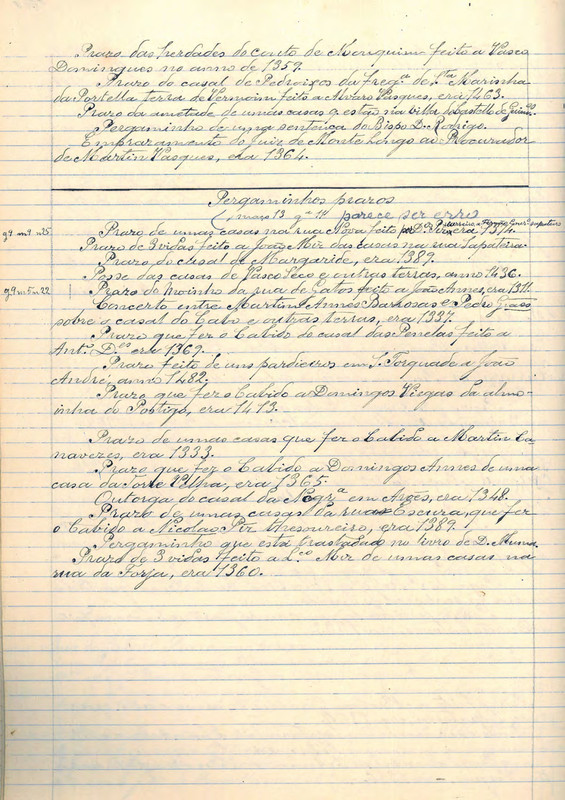 Prazo das herdades do couto de Morequim feito a Vasco
Domingues no anno de 1359.
Prazo do casal de Pedroiços da freg.ª de S.ta Marinha
da Portella terra de Vermoim feito a Alvaro Vasques, era 1463.
Prazo da ametade de umas casas q estão na villa do Castello de Guim.es
Pergaminho de uma sentença do Bispo D. Rodrigo.
Emprazamento do Juiz de Monte Longo ao Procurador
de Martim Vasques, era 1364.
Pergaminhos prazos
(maço 13 g.ta 11 parece ser erro
g4 m4 n25 Prazo de umas casas na rua Nova feito sapateiro era 1374.
Prazo de 3 vidas feito a João Miz das casas na rua Sapateira.
Prazo do casal de Margaride, era 1389.
Posse das casas de Vasco Seco e outras terras, anno 1436.
g9 m5 n22 Prazo do moinho da rua de Gatos feito a João Annes, era 1311.
Concerto entre Martim Annes Barbosas e Pedro
sobre o casal do Cabo e outras terras, era 1337.
Prazo que fez o Cabido do casal das Penelas feito a
Ant.º D.es era 1369.
Prazo feito de uns pardieiros em S. Torquade a João
André, anno 1482.
Prazo que fez o Cabido a Domingos Viegas da almo-
inha do Postigo, era 1413.
Prazo de umas casas que fez o Cabido a Martim Ca
naveres, era 1333.
Prazo que fez o Cabido a Domingos Annes de uma
casa da Torre Velha, era 1365.
Outorga do casal da Negr.ª em Aroes, era 1348.
Prazo de umas casas da rua Escura, que fez
o Cabido a Nicolao Piz thesoureiro, era 1389
Pergaminho que está trasladado no livro de D. Muma.
Prazo de 3 vidas feito a L.ço Miz de umas casas na
rua da Forja, era 1360.